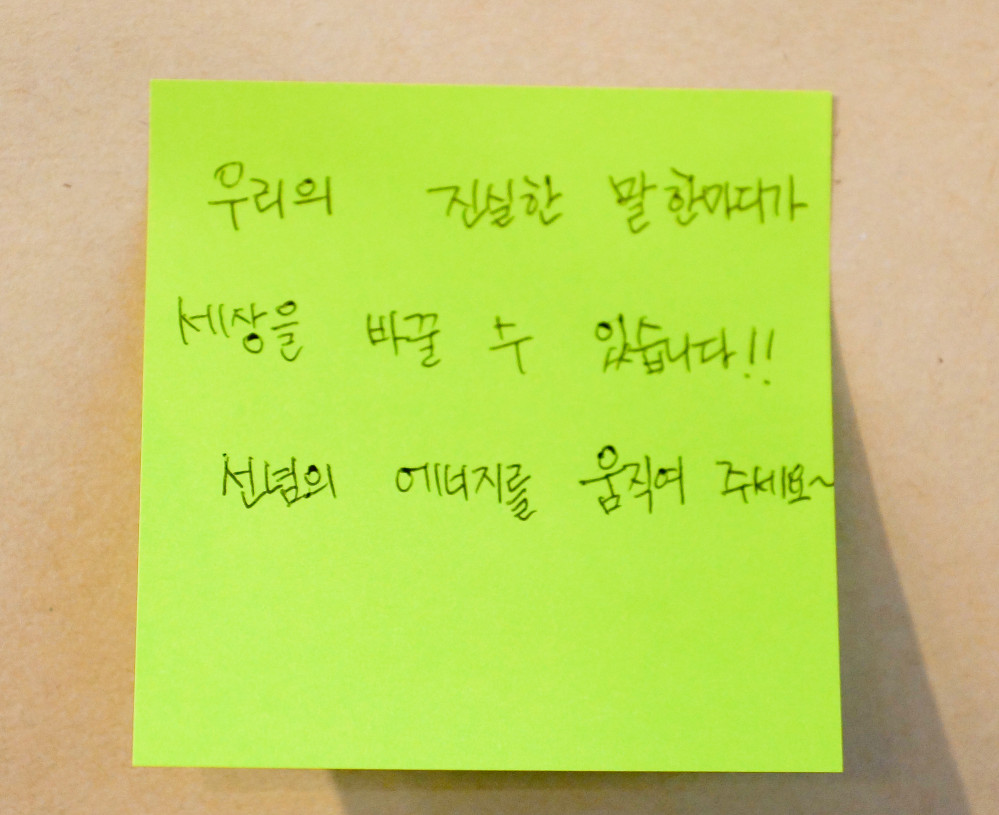 우리의 진실한 말 한마디가
세장을 바꿀 수 있습니다!!
선념의 에너지를 움직여 주세요~